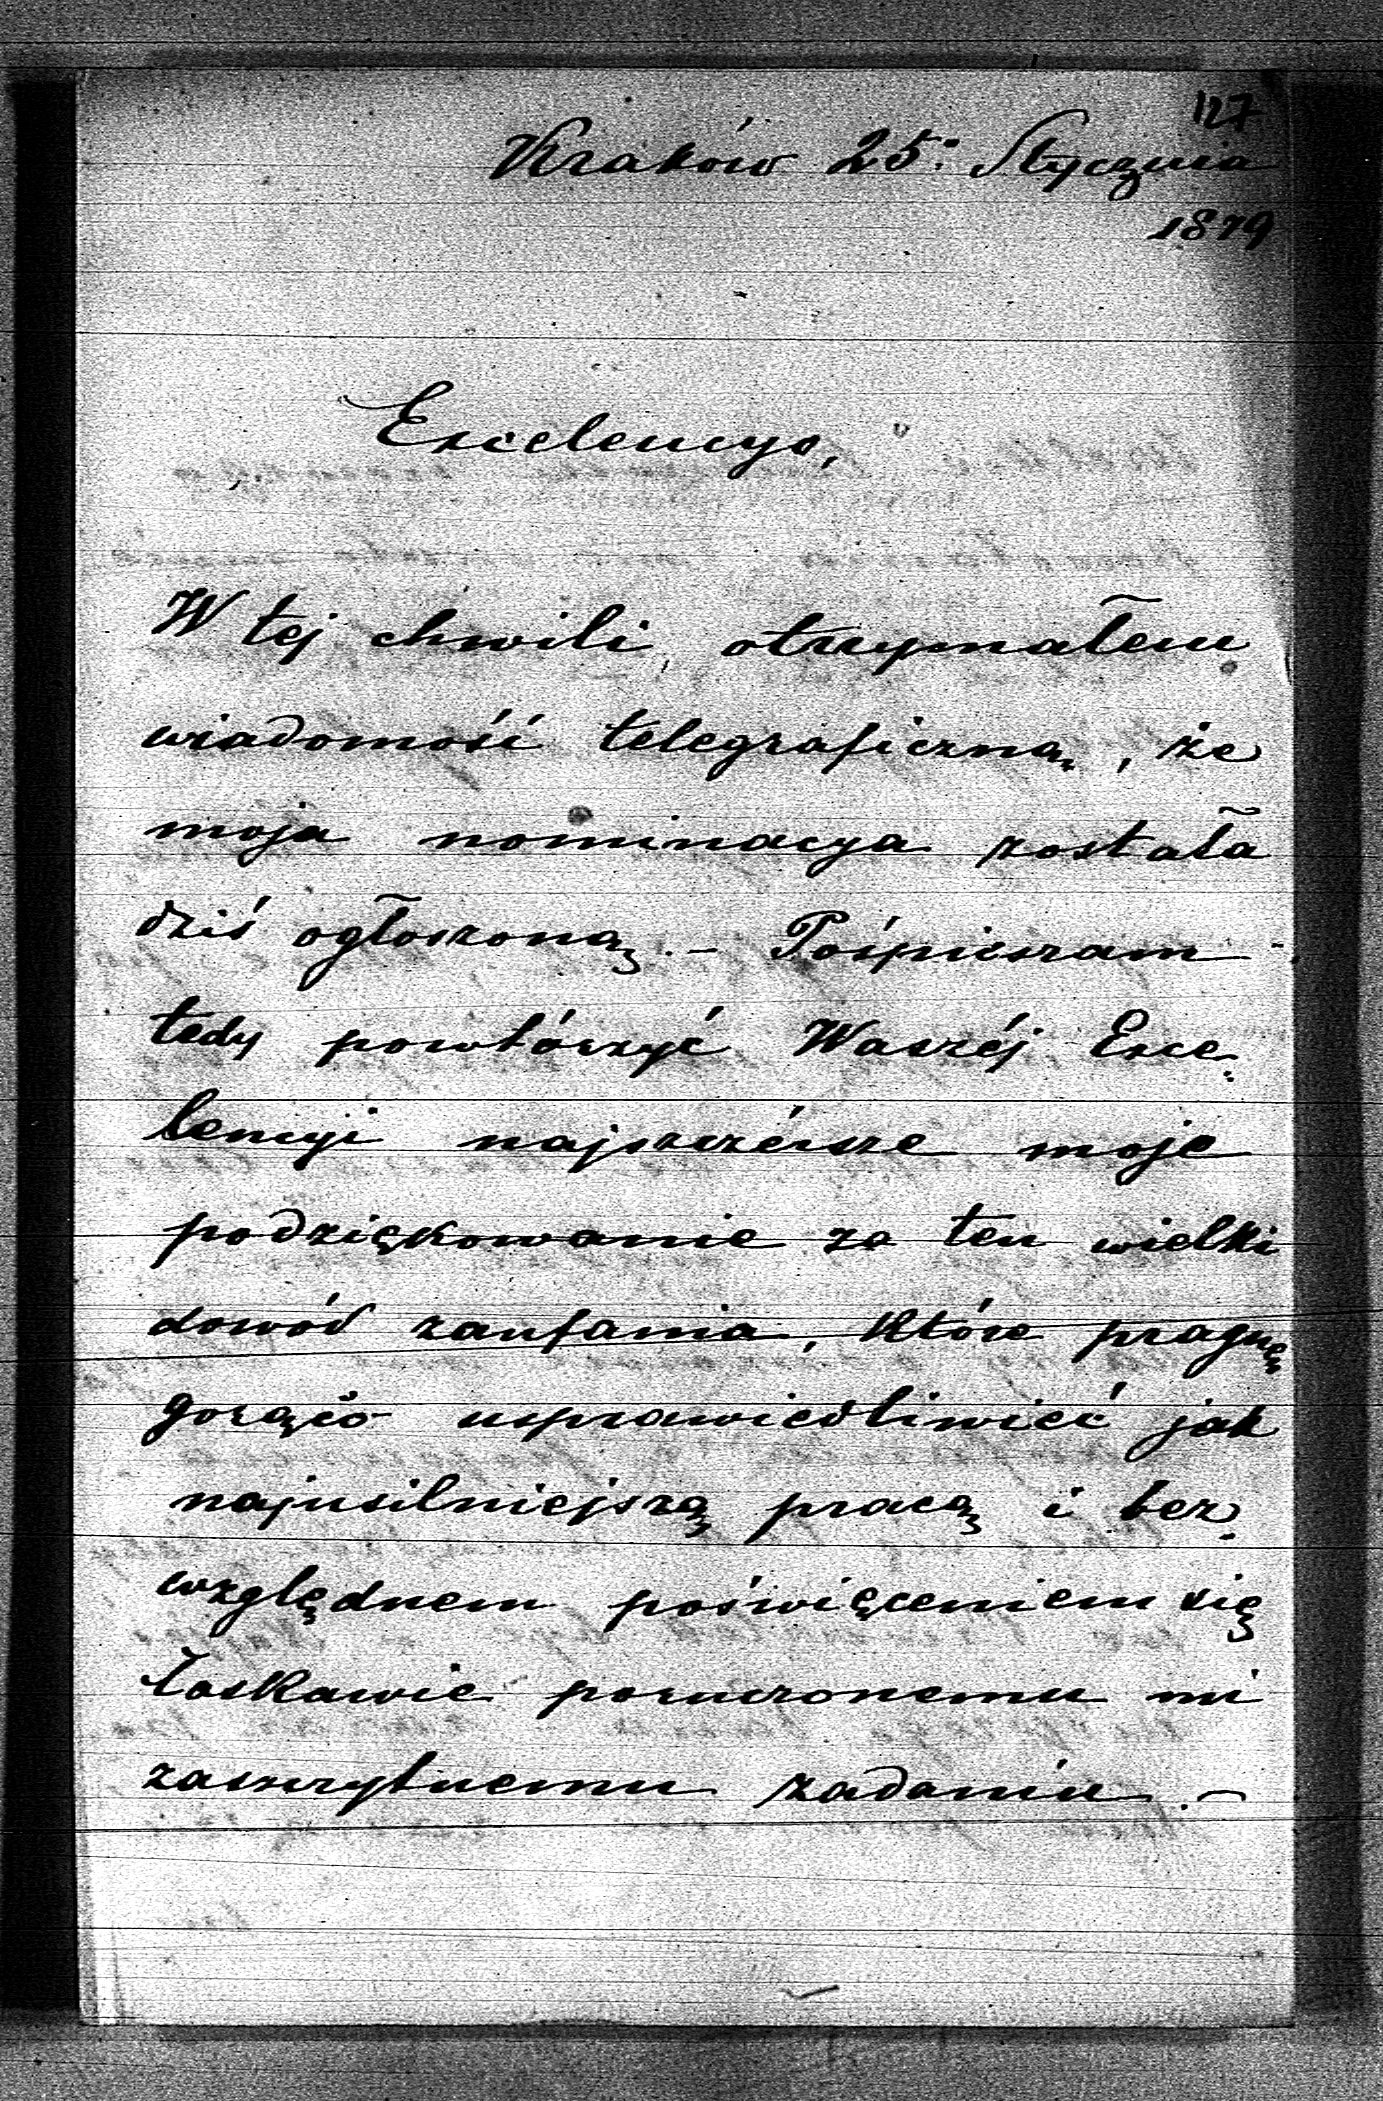 127
Kraków 25: Stycznia
1879
Excelencyo,
W tej chwili, otrzymałem
wiadomość telegraficzną, że
moja nominacya została
dziś ogłoszoną. – Pośpieszam
tedy powtórzyć Waszéj Exce-
lencyi najszczérsze moje
podziękowanie za ten wielki
dowód zaufania, które pragnę
gorąco usprawiedliwieć jak
najusilniejszą pracą i bez-
względnem poświęceniem się
łaskawie poruczonemu mi
zaszczytnemu zadaniu. –